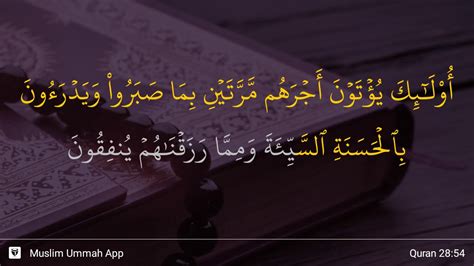 أُوْلَـٰٓئِكَ يُؤۡتَوۡنَ أَجۡرَهُم مَّرَّتَيۡنِ بِمَا صَبَرُواْ وَيَدۡرَءُونَ
بِٱلۡحَسَنَةِ ٱلسَّيِّئَةَ وَمِمَّا رَزَقۡنَٰهُمۡ يُنفِقُونَ
Muslim Ummah App
Quran 28:54